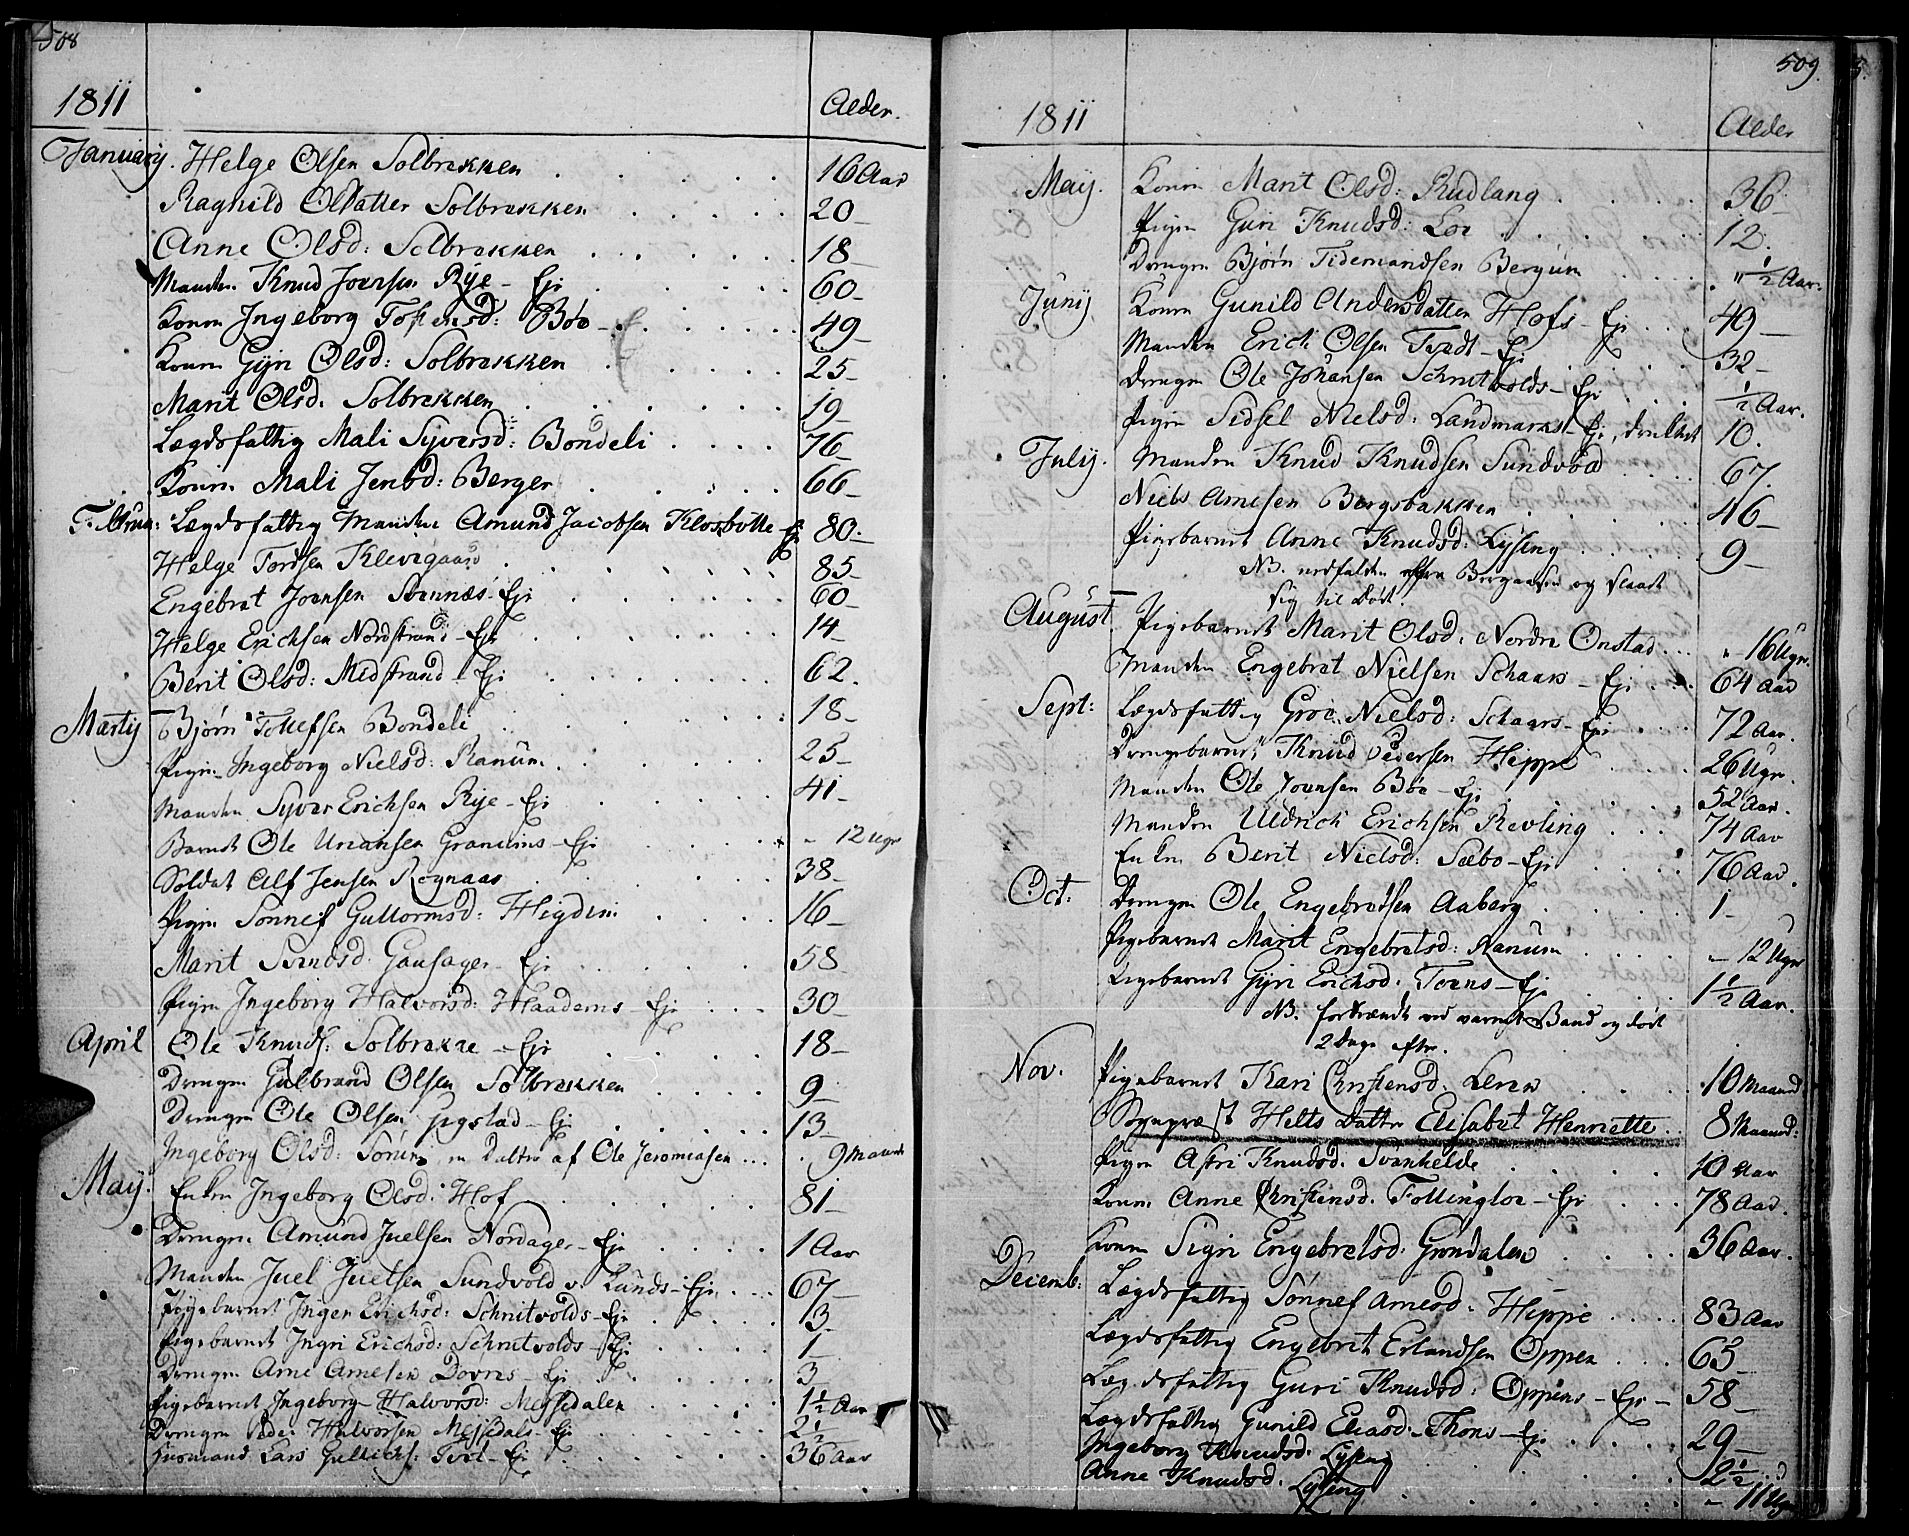 508
1811 Alder.
January. Helge Olsen Solbrekken 16 Aar
Ragnild Olsdatter Solbrekken 20
Anne Olsd: Solbrekken 18
Manden Knud Joensen Rye - Eje 60
Konen Ingeborg Tostensd: Böe - E 49
Konen Gyri Olsd: Solbrekken 25
Marit Olsd: Solbrekken 19
Lægdsfattig Mali Syversd: Bondeli 76
Konen Mali Jensd: Berger 66
Februar: Lægdsfattig Manden Amund Jacobsen Klosbøtte Eje 80
Helge Tordsen Klevgaard 85
Engebret Joensen Svennæs - Eje 60
Helge Erichsen Nordstrand - Eje 14
Berit Olsd: Medstrand - Eje 62
Martij Bjørn Tollefsen Bondeli 18
Pigen Ingeborg Nielsd: Ranum 25
Manden Syver Erichsen Rye - Eje 41
Barnet Ole Unansen - Eje 12 Uger
Soldat Alf Jensen Rognaas 38
Pigen Sønnef Guttormsd: Hegden 16
Marit Svendsd: Gausager - Eje 58
Pigen Ingeborg Halvorsd: Haadems - Eje 30
April Ole Knuds: Solbrekke - Eje 18
Drengen Gulbrand Olsen Solbrekken 9
Drengen Ole Olsen - Eje 13
Ingeborg Olsd: en Datter af Ole Jeremiasen 9 Maaned
May. Enken Ingeborg Olsd: Hof 81
Drengen Amund Juelsen Nordager - Eje 1 Aar
Manden Juel Juelsen Sundvold v. Lunds - Eje 67
Pigebarnet Inger Erichsd: Schrutvolds - Eje 13
Pigebarnet Ingri Erichsd: Schrutvolds - Eje 1
Drengen Arne Arnesen Dovres - Eje 3
Pigebarnet Ingeborg Halvorsd: Mejsdalen 1½ Aar
Drengen Peder Halvorsen Mejsdals - Eje 2½
Husmand Lars Gulliks: Tvet - Eje 36 Aar
509.
1811 Alder
Maij. Konen Marit Olsd: Rudlang 36
Pigen Guri Knudsd: Loe 12
Drengen Bjørn Tidemandsen Bergum ½ Aar
Junij Konen Gunild Andersdatter Hofs - Eje 49
Manden Erich Olsen Tvedt - Eje 32
Drengen Ole Johansen Schrutvolds - Eje ½ Aar.
Pigen Sidsel Nielsd: Landmarks - Eje, druknet 10.
Julij. Manden Knud Knudsen Sundvold 67.
Niels Arnesen Bergsbakken 46
Pigebarnet Anne Knudsd: Lysing 9
NB. nedfalden og slaaet
sig til Død.
August. Pigebarnet Marit Olsd: Nordre Onstad 16 Uger.
Manden Engebret Nielsen Schaars - Eje 64 Aar
Sept: Lægdsfattig Groe Nielsd: Schaars - Eje 72 Aar.
Drengebarnet Knud Pedersen Hippe 26 Uger.
Manden Ole Joensen Böe - Eje 52 Aar.
Manden Uldrich Erichsen Revling 74 Aar
Enken Berit Nielsd: Sæbo - Eje 76 Aar.
Oct: Drengen Ole Engebretsen Aaberg 1
Pigebarnet Marit Engebretsd: Ranum 12 Uger
Pigebarnet Gyri Erichsd: - Eje 1½ Aar.
NB. forbrændt ved varmt Vand og døde
2 Dage efter.
Nov. Pigebarnet Kari Christensd: 10 Maaned
Sognepræst Helts Datter Elisabet Henriette. 8 Maaned:
Pigen Astri Knudsd: Svenkelde 10 Aar
Konen Anne Christensd: Follingloe - Eje 78 Aar.
Konen Sigri Engebretsd: Grøndalen 36 Aar.
Decemb: Lægdsfattig Sønnef Arnesd: Hippe 83 Aar
Lægdsfattig Engebrit Erlandsen Oppen 65
Lægdsfattig Guri Knudsd: Oppens - Eje 58
Lægdsfattig Gunild Eliasd: Thons - Eje 29
Ingeborg Knudsd: Lysing 2½
Anne Knudsd: Lysing 11 Uger